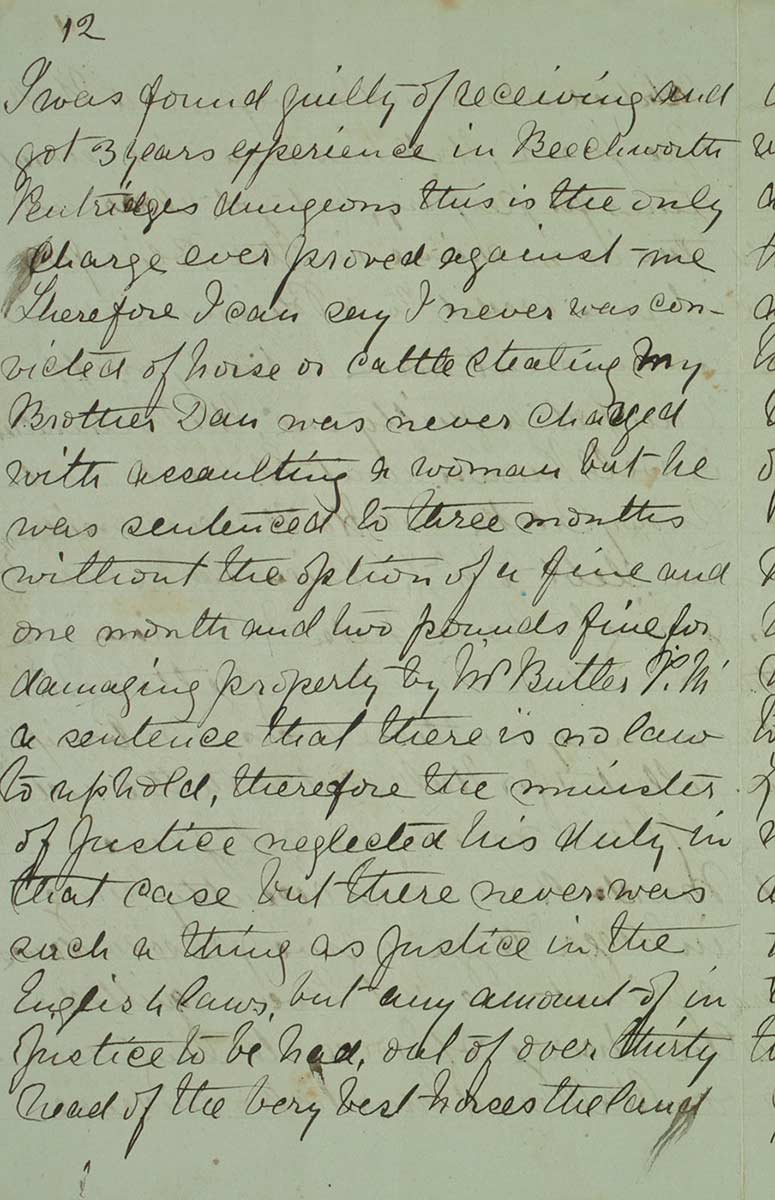 12
I was found guilty of receiving and
got 3 years experience in Beechworth
Pentridges dungeons this is the only
charge ever proved against me
Therefore I can say I never was con-
victed of horse or cattle stealing My
Brother Dan was never charged
with assaulting a woman but he
was sentenced to three months
without the option of a fine and
one month and two pounds fine for
damaging property by Mr Butler P.M
a sentence that there is no law
to uphold, therefore the minister
of Justice neglected his duty in
that case but there never was
such a thing as Justice in the
English laws, but any amount of in
Justice to be had, out of over thirty
head of the very best horses the land